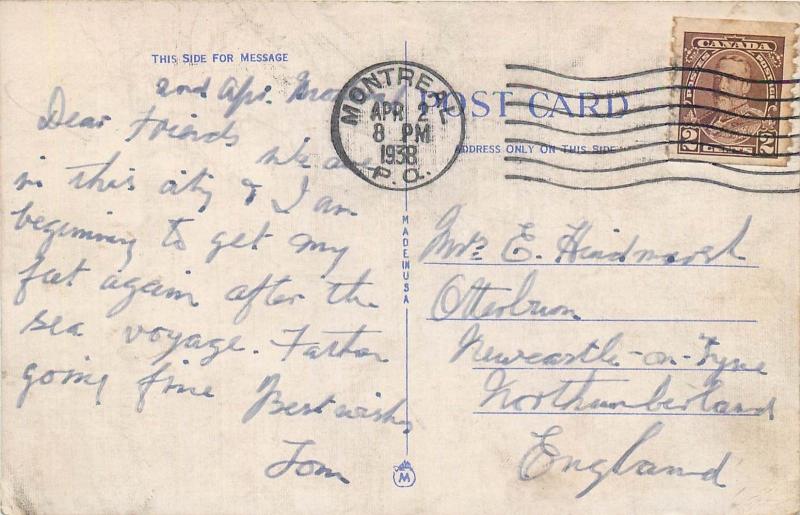 THIS SIDE FOR MESSAGE
2nd Apr. Montreal
Dear Friends We are
in this city & I am
beginning to get my
feet again after the
sea voyage. Father
going fine Best wishes
Tom
MADE IN USA
M
MONTREAL
APR 2
8 PM
1938
P.Q.
POST CARD
ADDRESS ONLY ON THIS SIDE
CANADA
CENTS POSTAGE
2 2
Mrs E. Hindmarsh
Otterburn
Newcastle-on-Tyne
Northumberland
England